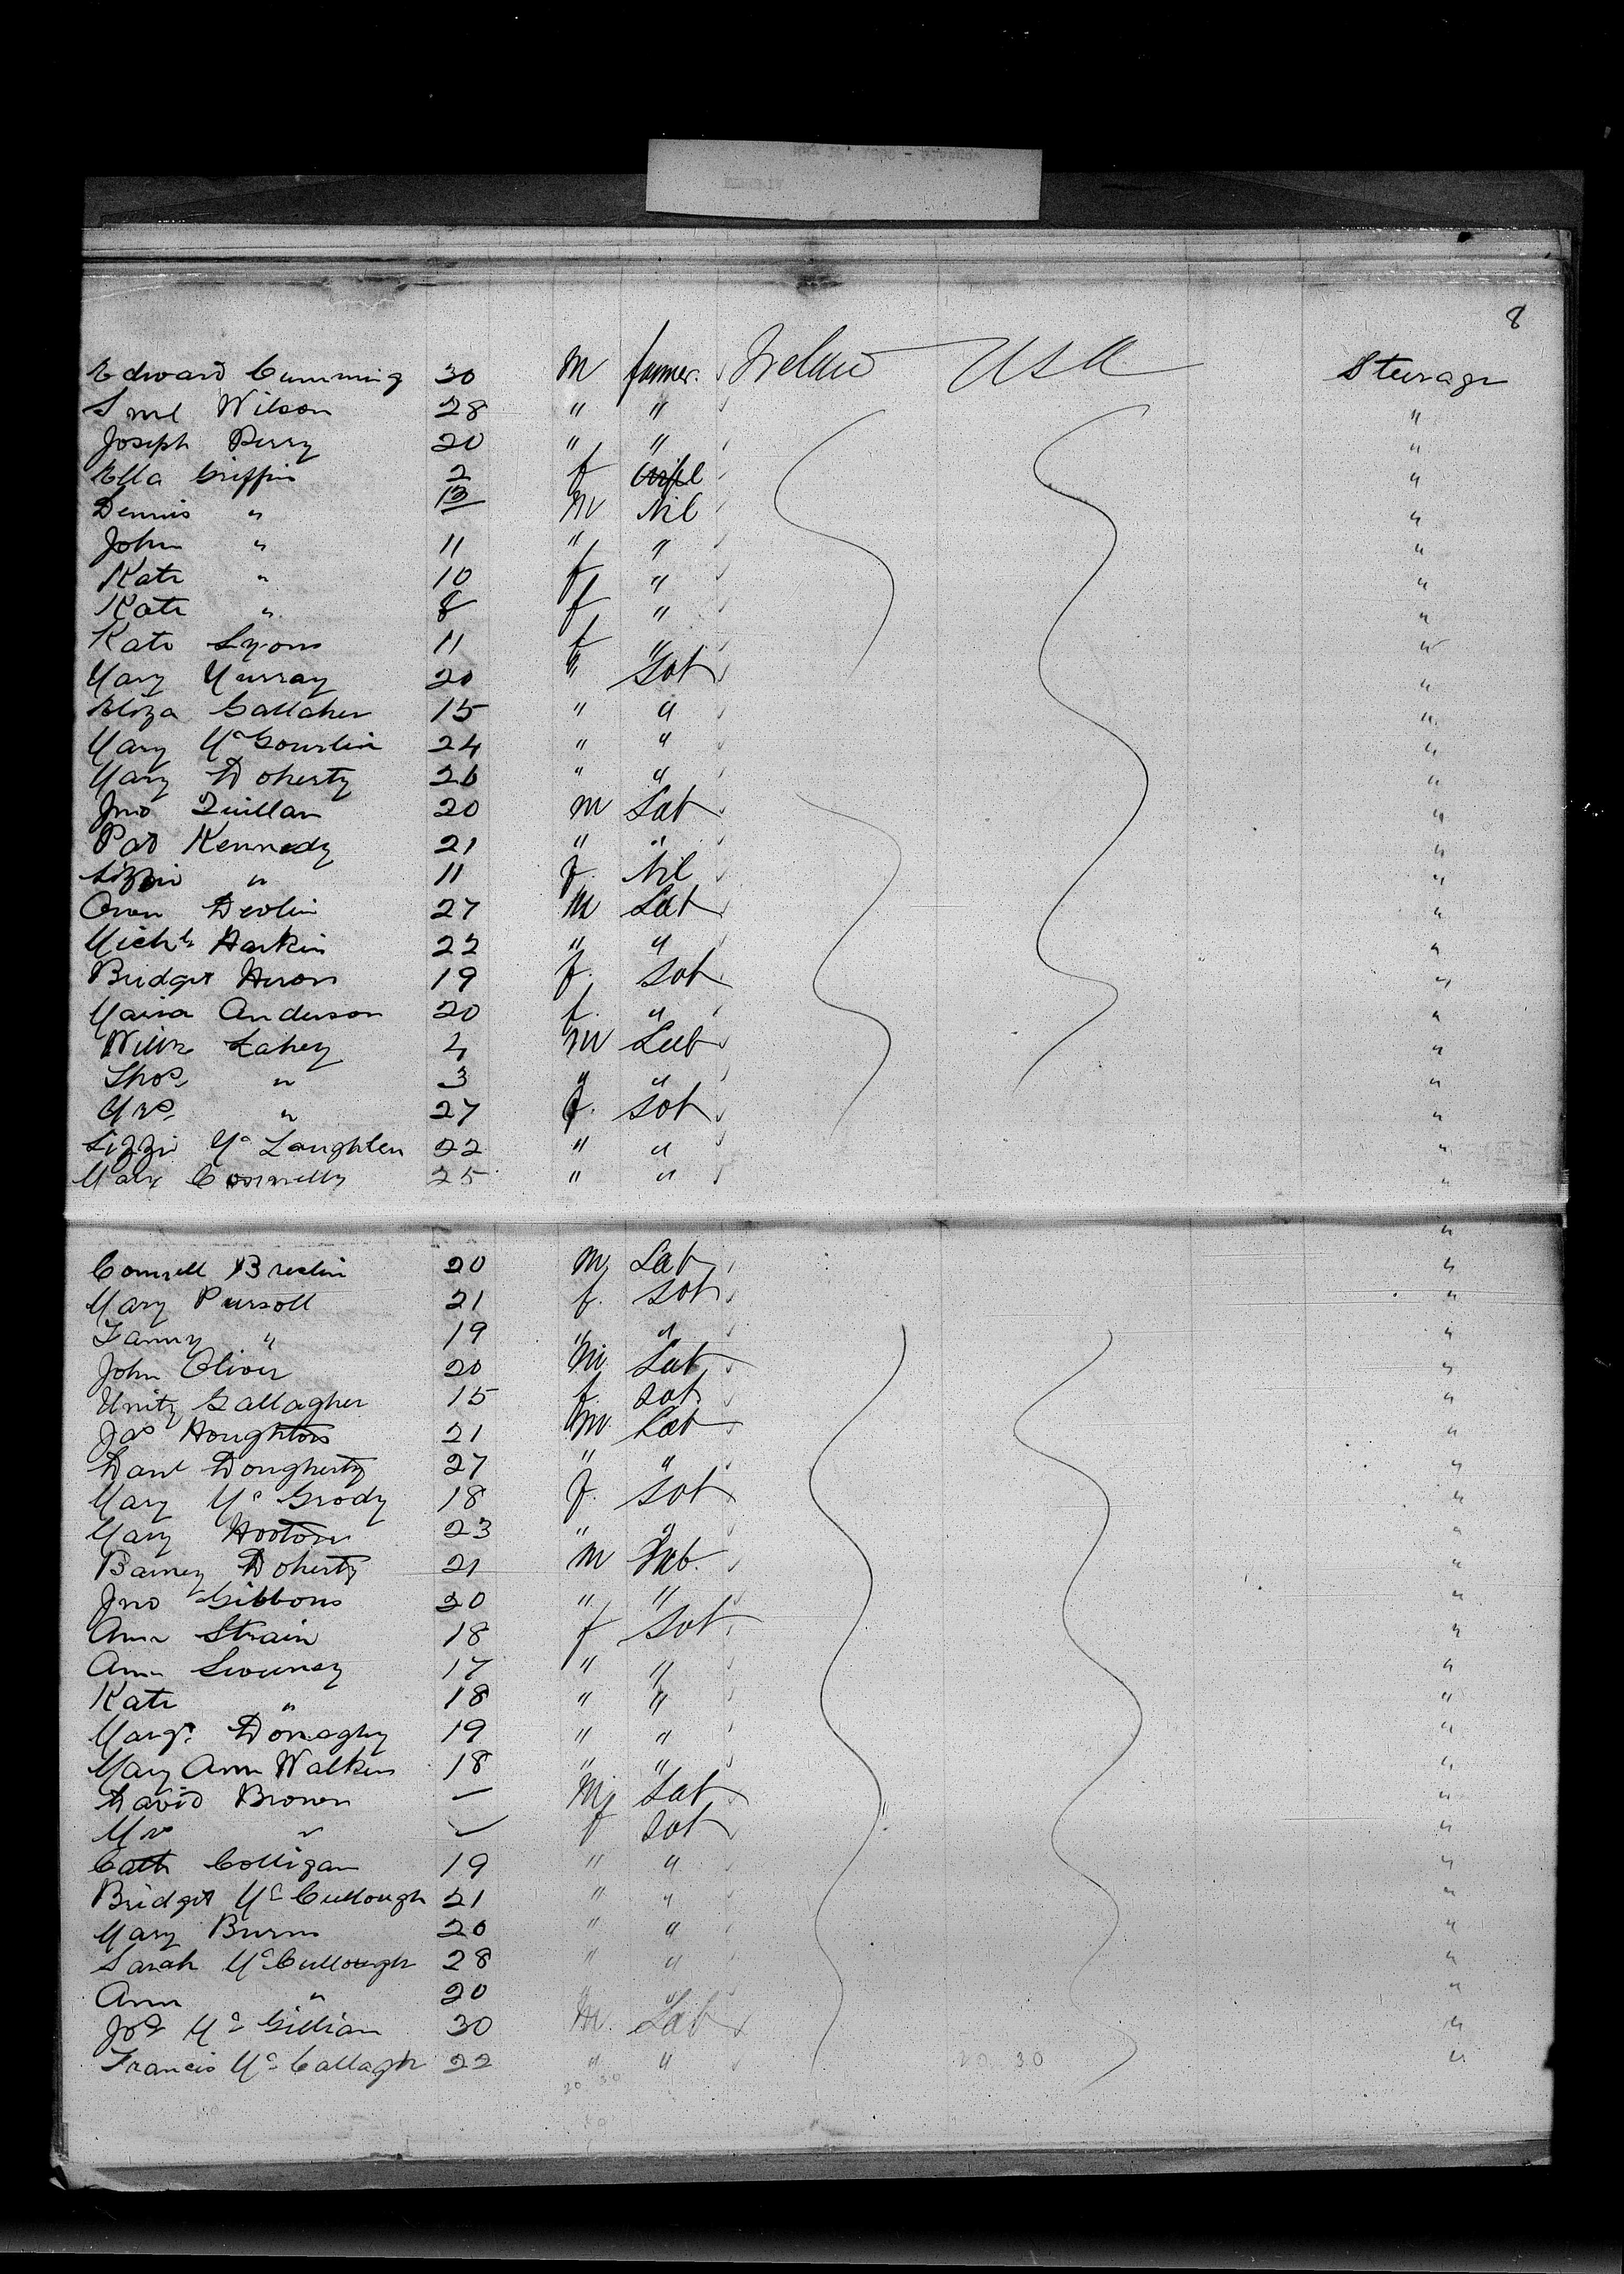 8
Edward Cumming 30 M farmer. Ireland USA Steerage
Saml Wilson 28 " " "
Joseph Perry 20 " " "
Ella Griffin 2 f "
Dennis " 13 M Nil "
John " 11 " " "
Kate " 10 f " "
Kate " 8 f " "
Kate Lyons 11 f " "
Mary Murray 20 " Sot "
Eliza Gallaher 15 " " "
Mary McGourlin 24 " " "
Mary Doherty 26 " " "
Jno Quillan 20 M Lab "
Pat Kennedy 21 " " "
Lizzie " 11 f. Nil "
Owen Devlin 27 M Lab "
Michl Harkin 22 " " "
Bridget Heron 19 f. Sot "
Maria Anderson 20 f. " "
Willm Lahey 4 M Lab "
Thos " 3 " " "
Mrs " 27 f. Sot "
Lizzie McLaughlen 22 " " "
Mary Connelly 25 " " "
"
Connell Breslin 20 M Lab "
Mary Pursoll 21 f. Sot "
Fanny " 19 " " "
John Oliver 20 M Lab "
Unity Gallagher 15 f. Sot "
Jas Houghton 21 M. Lab "
Danl Dougherty 27 " " "
Mary McGrody 18 f. Sot "
Mary Hooton 23 " " "
Barney Doherty 21 M Lab. "
Jno Gibbons 20 " " "
Ann Strain 18 f Sot "
Ann Sweeney 17 " " "
Kate " 18 " " "
Margt. Donaghy 19 " " "
Mary Ann Walker 18 " " "
David Brown — M Lab "
Mrs " — f Sot "
Cath Colligan 19 " " "
Bridget McCullough 21 " " "
Mary Burns 20 " " "
Sarah McCullough 28 " " "
Ann " 20 " " "
Jos McGillian 30 M. Lab "
Francis McCallagh 22 " " "
20 30
20 30